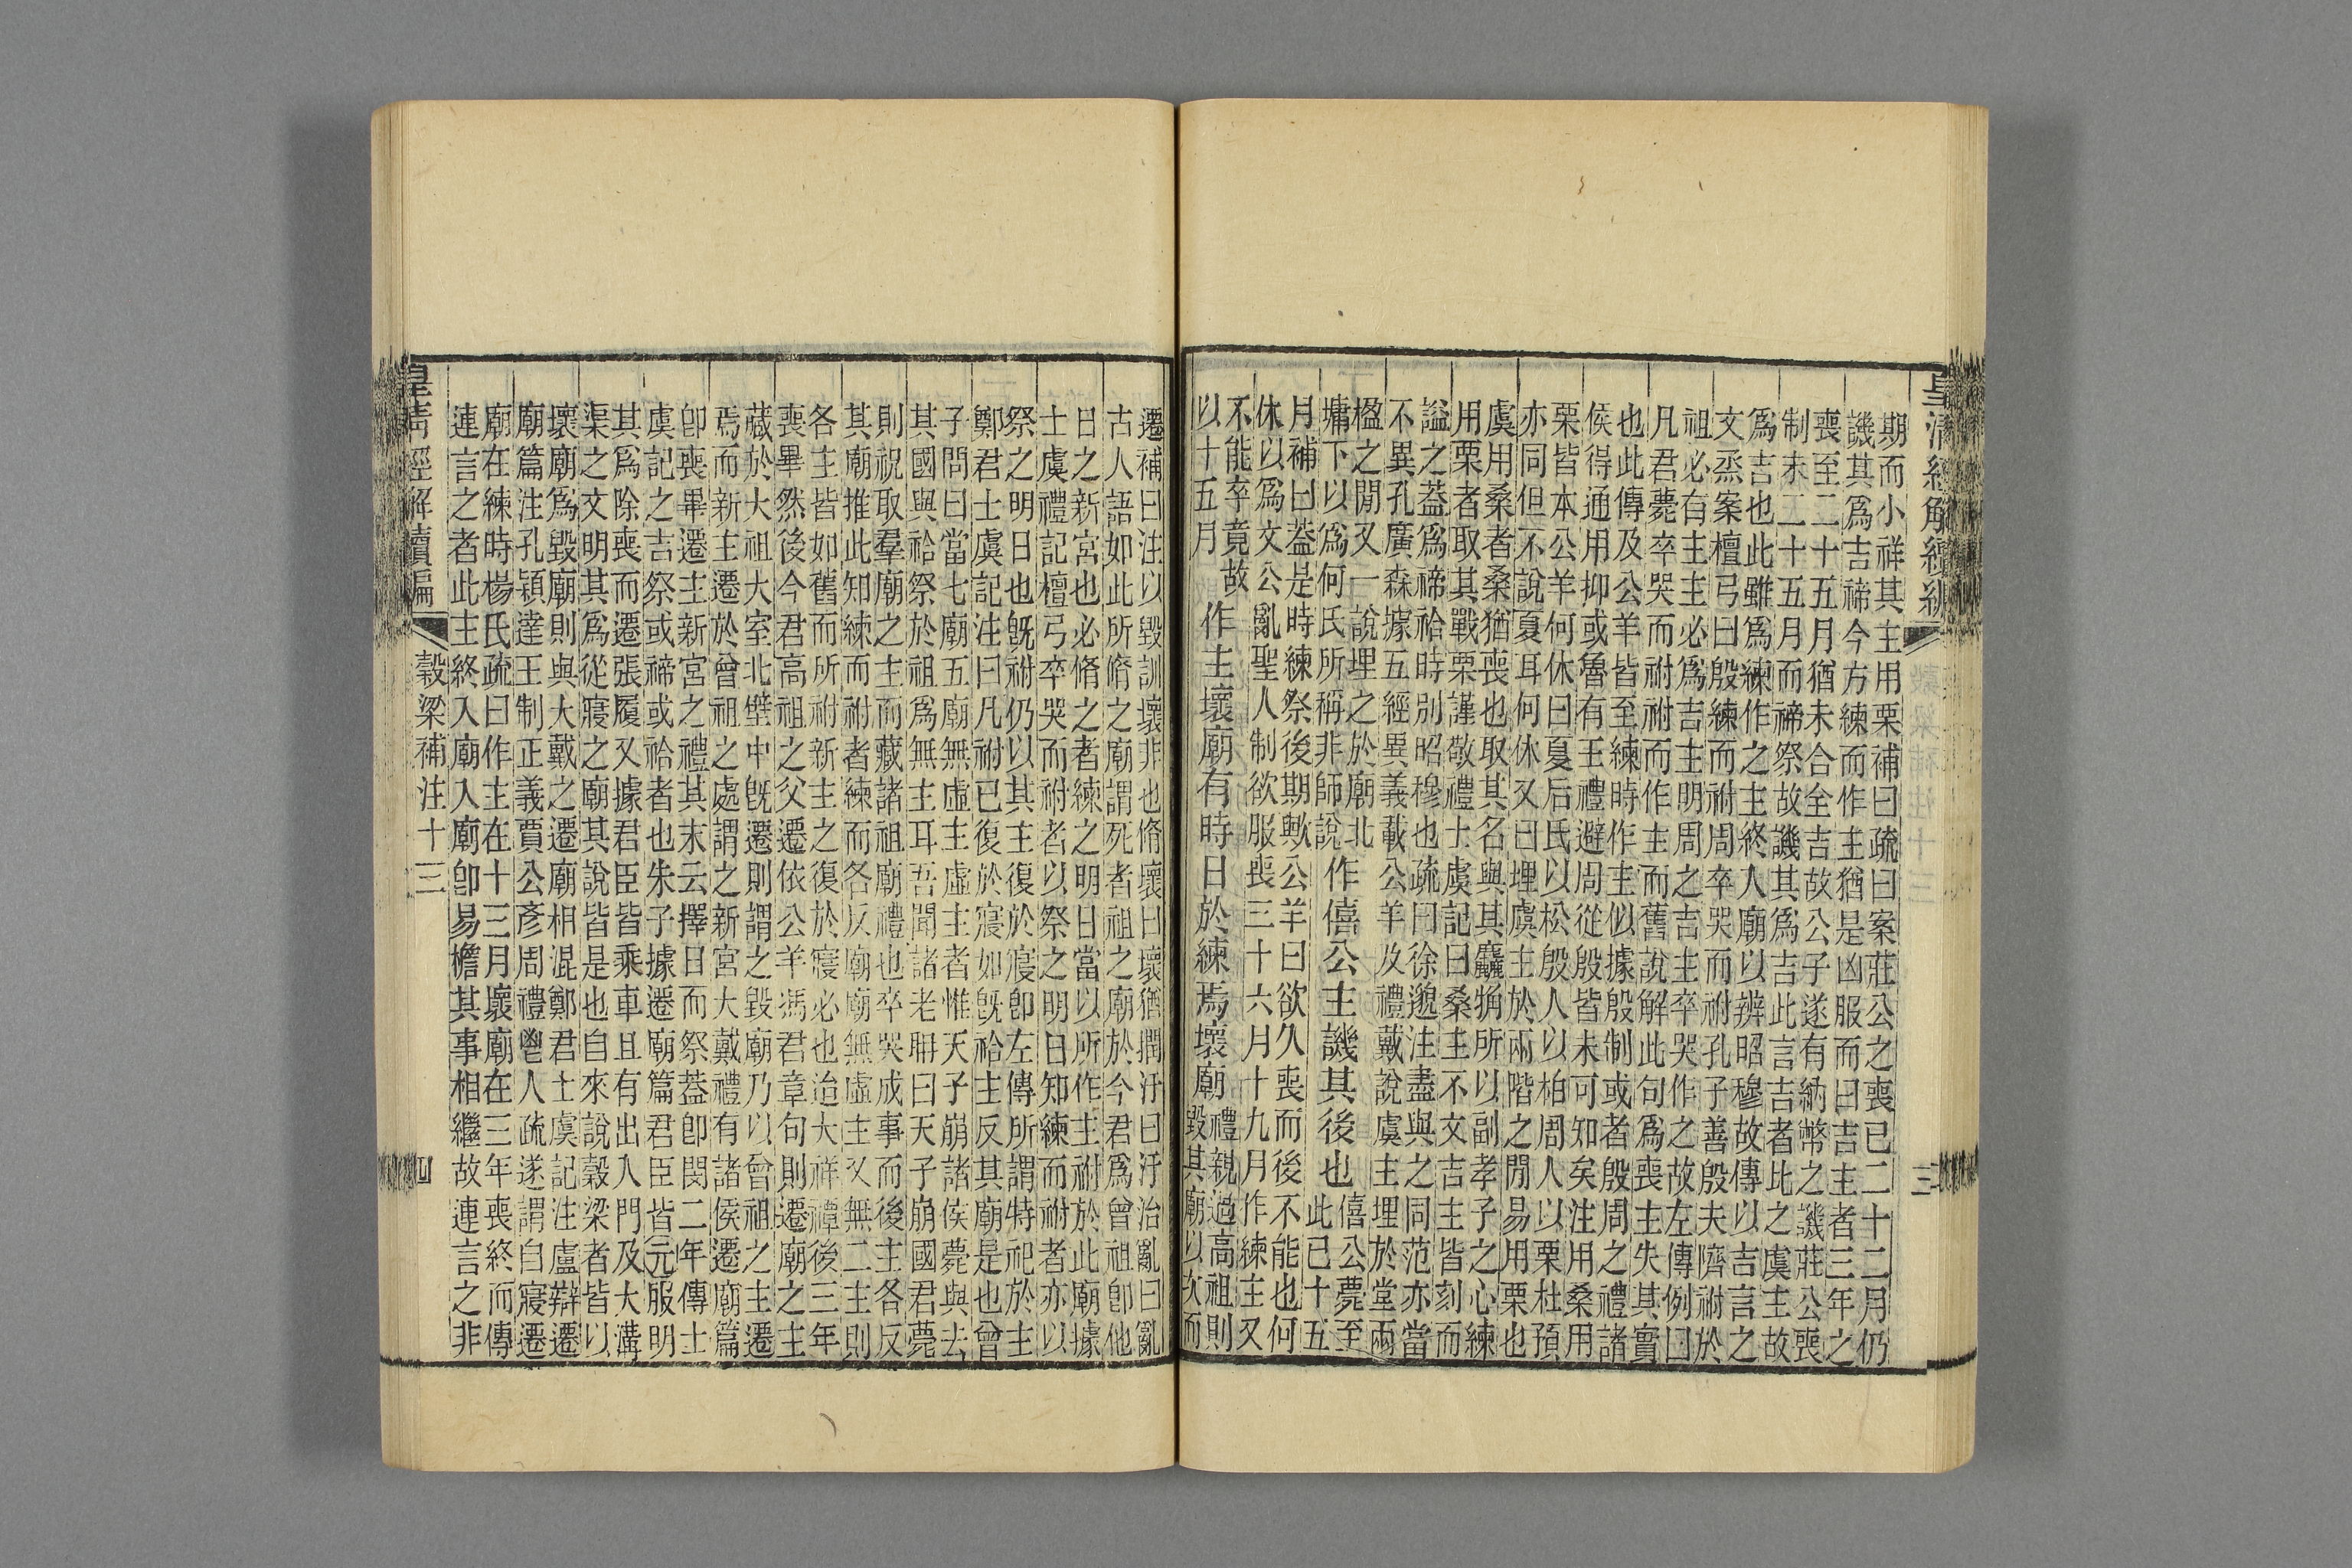 皇清經解續編
三
期而小祥其主用栗補曰疏曰案莊公之喪已二十二月仍
譏其爲吉禘今方練而作主猶是凶服而曰吉主者三年之
喪至二十五月猶未合全吉故公子遂有納幣之譏莊公喪
制未二十五月而禘祭故譏其爲吉此言吉者此之虞主故
爲吉也此雖爲練作之主終入廟以辨昭穆故傳以吉言之
文烝案檀弓曰殷練而祔周卒哭而祔孔子善殷夫隮祔於
祖必有主主必爲吉主明周之吉主卒哭作之故左傳例曰
凡君薨卒哭而祔祔而作主而舊說解此句爲喪主失其實
也此傳及公羊皆至練時作主似據殷制或者殷周之禮諸
侯得通用抑或魯有王禮避周從殷皆未可知矣注用桑用
栗皆本公羊何休曰夏后氏以松殷人以柏周人以栗杜預
亦同但不說夏耳何休又曰埋虞主於兩階之閒易用栗也
虞用桑者桑猶喪也取其名與其麤觕所以副孝子之心練
用栗者取其戰栗謹敬禮士虞記曰桑主不文吉主皆刻而
謚之葢爲禘祫時別昭穆也疏曰徐邈注盡與之同范亦當
不異孔廣森據五經異義載公羊及禮戴說虞主埋於堂兩
楹之閒又一說埋之於廟北
墉下以爲何氏所稱非師說
作僖公主譏其後也
僖公薨至
此已十五
月補曰葢是時練祭後期歟公羊曰欲久喪而後不能也何
休以爲文公亂聖人制欲服喪三十六月十九月作練主又
不能卒竟故
以十五月
作主壞廟有時日於練焉壞廟
禮親過高祖則
毀其廟以次而
遷補曰注以毀訓壞非也脩壞曰壞猶捫汙曰汙治亂曰亂
古人語如此所脩之廟謂死者祖之廟於今君爲曾祖卽他
日之新宮也必脩之者練之明日當以所作主祔於此廟據
士虞禮記檀弓卒哭而祔者以祭之明日知練而祔者亦以
祭之明日也旣祔仍以其主復於寢卽左傳所謂特祀於主
鄭君士虞記注曰凡祔已復於寢如旣祫主反其廟是也曾
子問曰當七廟五廟無虛主虛主者惟天子崩諸侯薨與去
其國與祫祭於祖爲無主耳吾聞諸老聃曰天子崩國君薨
則祝取羣廟之主而藏諸祖廟禮也卒哭成事而後主各反
其廟推此知練而祔者練而各反廟廟無虛主又無二主則
各主皆如舊而所祔新主之復於寢必也迨大祥禫後三年
喪畢然後今君高祖之父遷依公羊馮君章句則遷廟之主
藏於大祖大室北壁中旣遷則謂之毀廟乃以曾祖之主遷
焉而新主遷於曾祖之處謂之新宮大戴禮有諸侯遷廟篇
卽喪畢遷主新宮之禮其末云擇日而祭葢卽閔二年傳士
虞記之吉祭或禘或祫者也朱子據遷廟篇君臣皆元服明
其爲除喪而遷張履又據君臣皆乘車且有出入門及大溝
渠之文明其爲從寢之廟其說皆是也自來說穀梁者皆以
壞廟爲毀廟則與大戴之遷廟相混鄭君士虞記注盧辯遷
廟篇注孔穎達王制正義賈公彥周禮鬯人疏遂謂自寢遷
廟在練時楊氏疏曰作主在十三月壞廟在三年喪終而傳
連言之者此主終入廟入廟卽易檐其事相繼故連言之非
皇清經解續編
穀梁補注十三
四